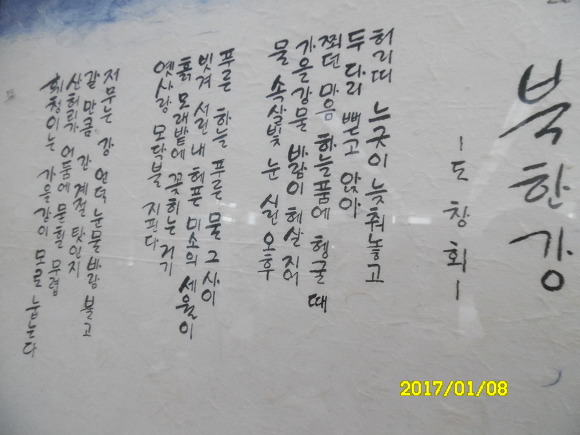 북한강
- 도창회 -
허리띠 느긋이 늦춰놓고
두 다리 뻗고 앉아
찌던 마음 하늘품에 헹굴 때
가을강물 바람이 헤살 지어
물 속살빛 눈 시린 오후
푸른 하늘 푸른 물 그 사이
빗겨 서린 내 헤픈 미소의 세월이
흙 모래밭에 꽂히는 거기
옛사랑 모닥불 지핀다
저무는 강 언덕 눈물바람 불고
갈 만큼 간 계절 탓인지
산허리가 어둠에 묻힐 무렵
휘청이는 가을강이 모로 눕는다
2017/01/08